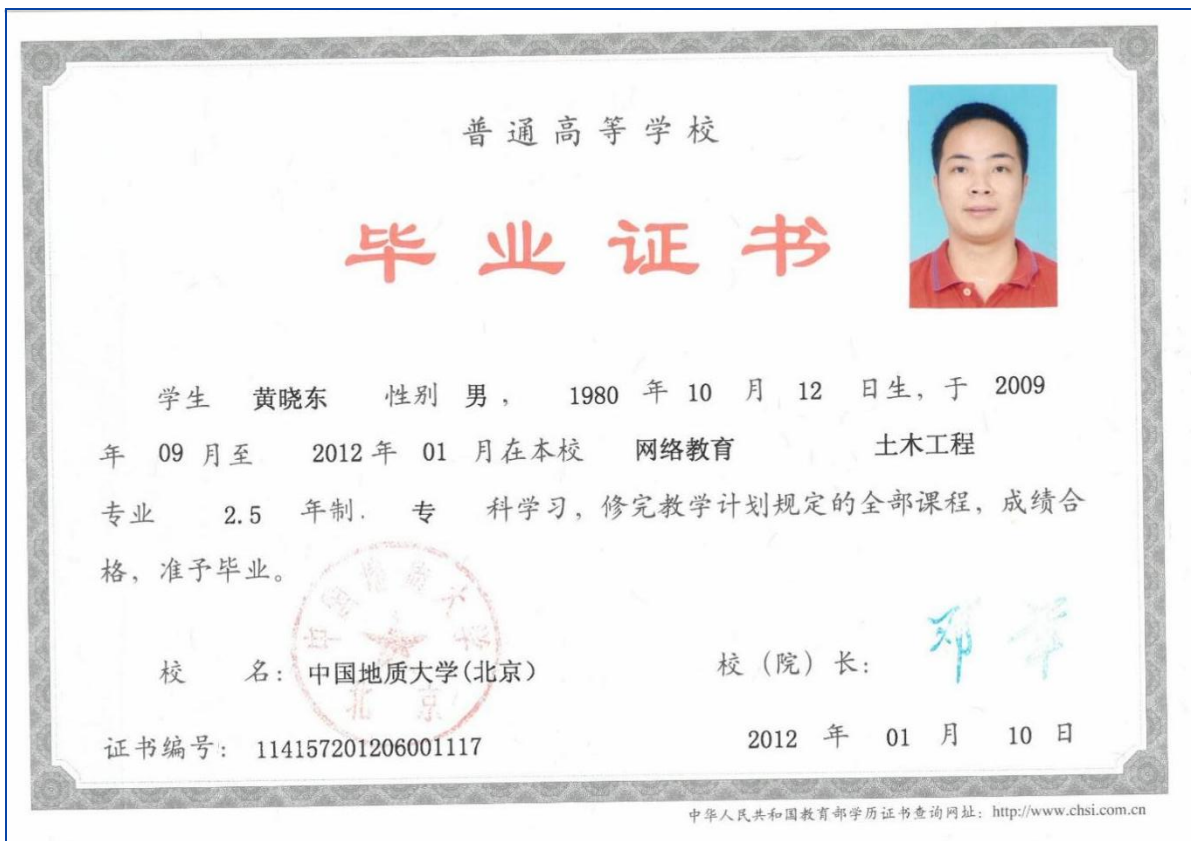 普通高等学校
毕业证书
学生 黄晓东 性别 男， 1980 年 10 月 12 日生，于 2009
年 09 月至 2012 年 01 月在本校 网络教育 土木工程
专业 2.5 年制. 专 科学习，修完教学计划规定的全部课程，成绩合
格，准予毕业。
中国地质大学
北京
校 名：中国地质大学(北京)
校（院）长：
邓军
证书编号： 114157201206001117
2012 年 01 月 10 日
中华人民共和国教育部学历证书查询网址：http://www.chsi.com.cn